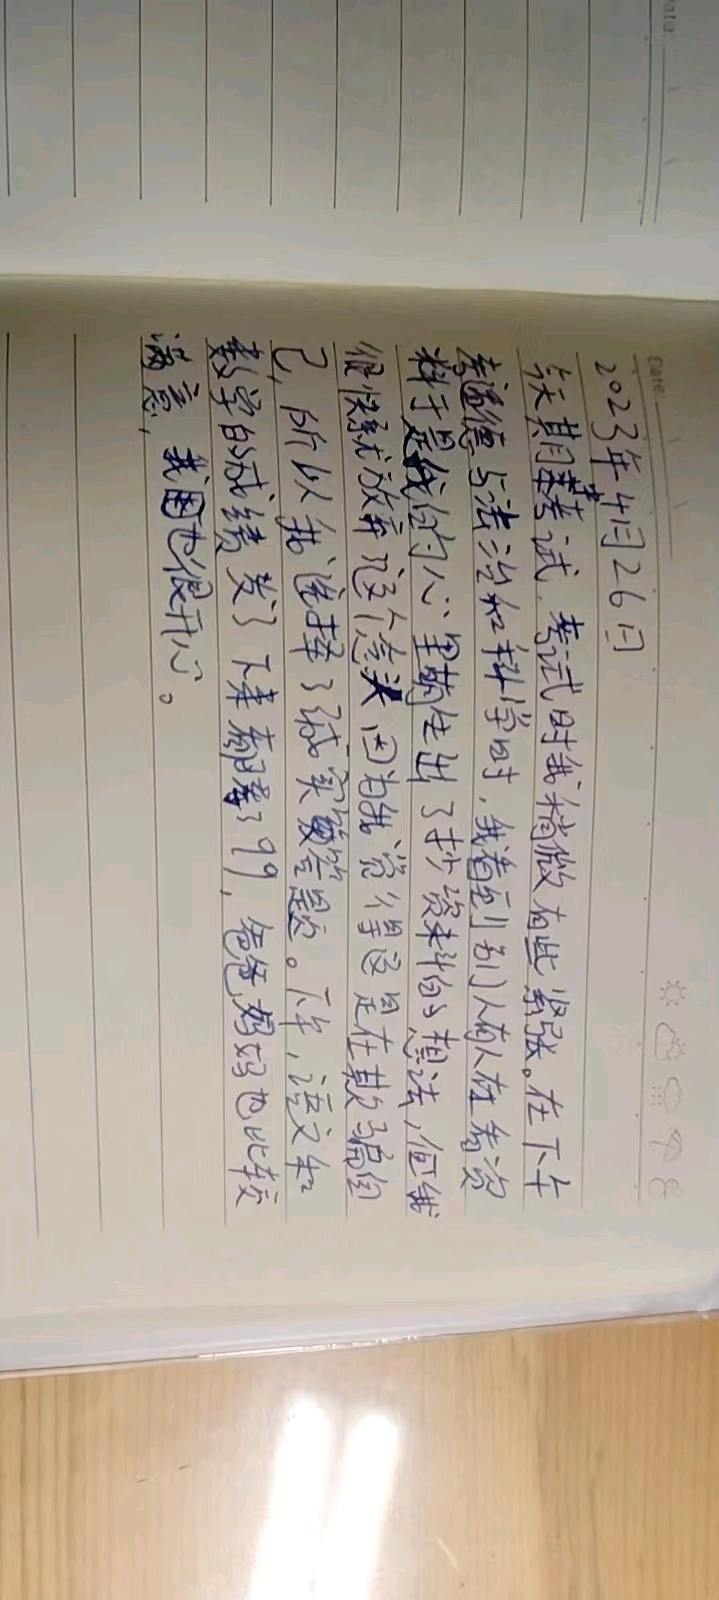 Date:
Date:
2023年4月26日
今天期末考试，考试时我稍微有些紧张。在下午
考道德与法治和科学时，我看到别人有人在看资
料于是我的心里萌生出了抄资料的想法，但我
很快就放弃了这个念头因为我觉得这是在欺骗自
己，所以我选择了诚实答题。下午，语文和
数学的成绩发了下来都是99，爸爸妈妈也比较
满意，我也很开心。